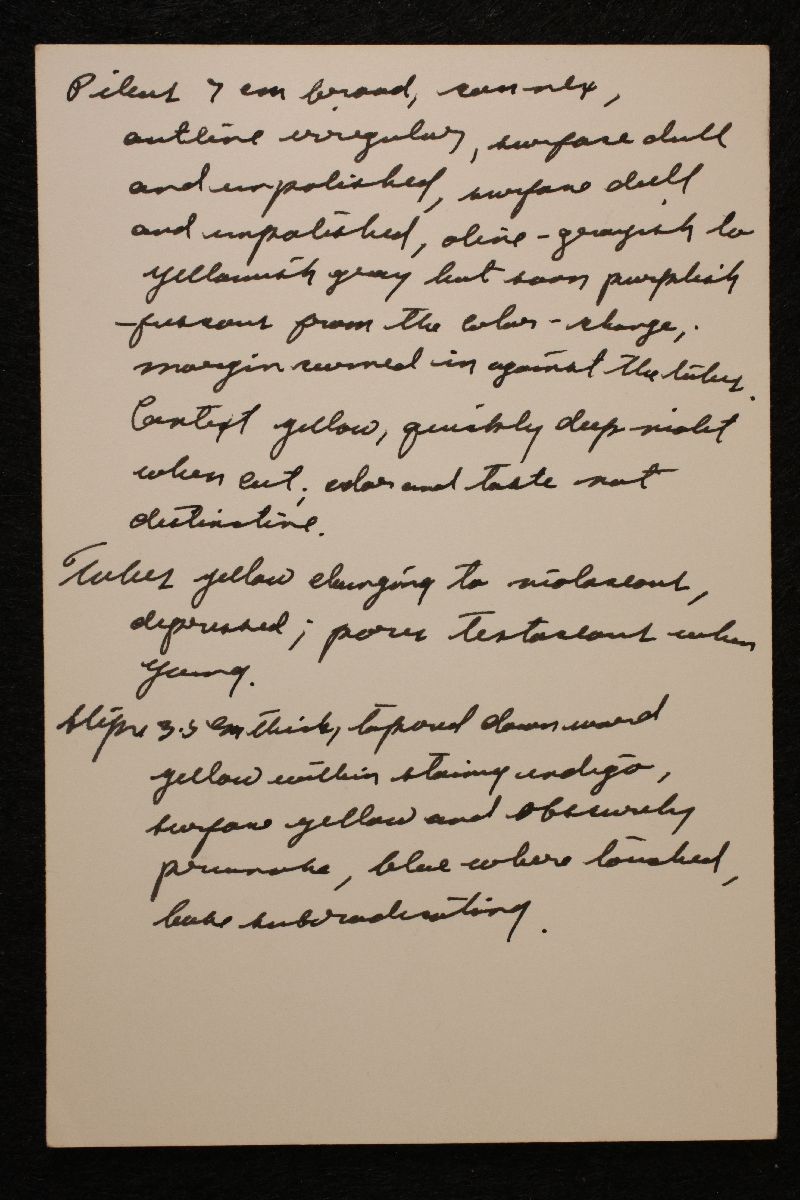 Pileus 7 cm broad, convex,
outline irregular, surface dull
and unpolished, surface dull
and unpolished, olive-grayish to
yellowish gray but soon purplish
-fuscous from the color-change,
margin curved in against the tubes.
Context yellow, quickly deep violet
when cut; odor and taste not
distinctive.
Tubes yellow changing to violaceous,
depressed; pores testaceous when
young.
Stipe 3.5 cm thick, tapered downward
yellow within staining indigo,
surface yellow and obscurely
pruinose, blue where touched,
base subradicating.